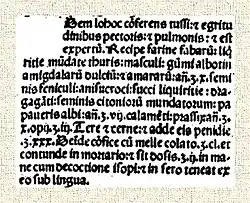 Item lohoc cōferens tussi: ⁊ egritu
dinibus pectoris: ⁊ pulmonis: ⁊ est
expertū. Recipe farine fabarū: liq̄
ritie mūdate thuris: masculi: gūmi albotin
amigdalarū dulciū: ⁊ amararū: añ.ʒ.x. semi
nis feniculi: anisi: croci: succi liquiritie: dra
gagāti: seminis citoniorū mundatorum: pa
paueris albi: añ.ʒ.vij. calamēti: prassi: añ.ʒ
x. opij.ʒ.iij. Tere ⁊ cerne: ⁊ adde eis penidie
.ʒ.xxx. Deīde cōfice cū melle colato.ʒ.cl. et
contunde in mortario: sit dosis.ʒ.ij. in ma
ne cum decoctione isopi: ⁊ in sero teneat ex
eo sub lingua.